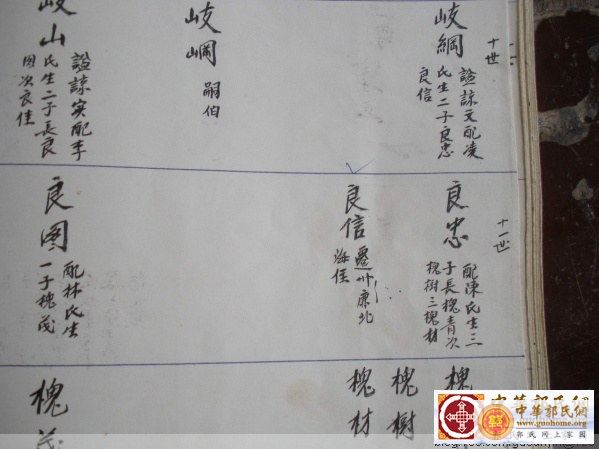 十世
岐綱
諡諒文配凌
氏生二子良忠
良信
岐崗
嗣伯
岐山
諡諒实配李
氏生二子長良
图次良佳
十一世
良忠
配陳氏生三
子長槐青次
槐樹三槐材
良信
遷卅康北
海住
良图
配林氏生
一子槐茂
槐
槐樹
槐材
槐茂
中華郭氏網
www.guohome.org
郭氏网上家园